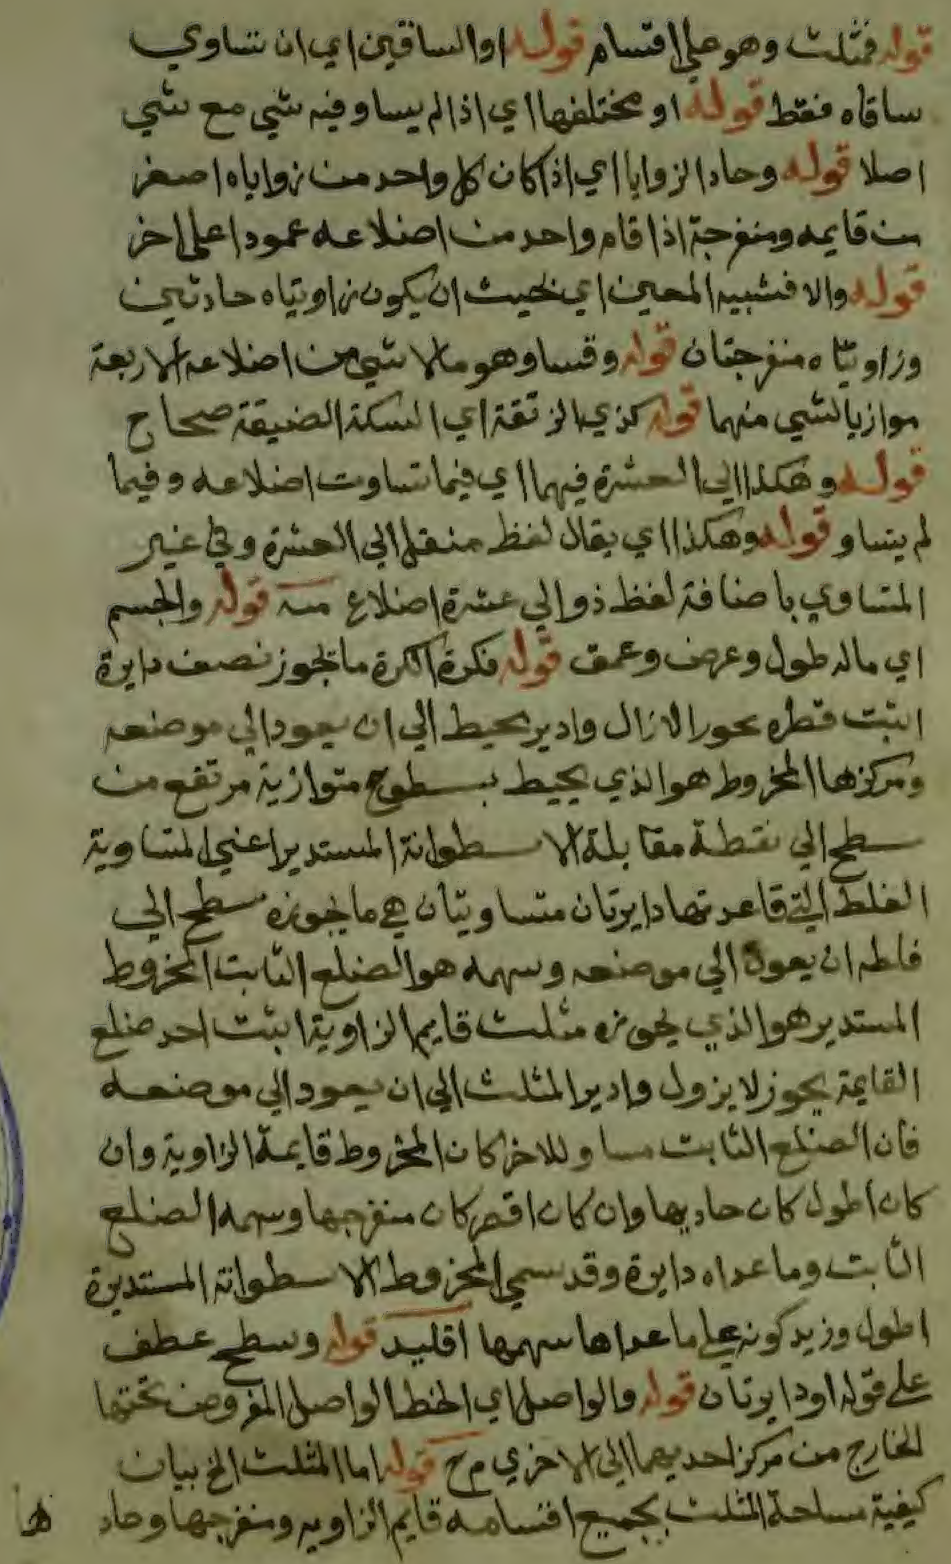 قوله فمثلث وهو علي اقسام قوله او الساقين اي ان تساوي
ساقاه فقط قوله او مختلفها اي اذا لم يساو فيه شي مع شي
اصلا قوله وحاد الزوايا اي اذا كان كل واحد من زواياه اصغر
من قايمه ومنفرجة اذا قام واحد من اضلاعه عمودا علي اخر
قوله والا فشبيه المعين اي بحيث ان يكون زاويتاه حادتين
وزاويتاه منفرجتان قوله وقسا وهو مالا شي من اضلاعه الاربعة
موازيا لشي منها قوله كذي الزنقة اي السكة الضيقة صحاح
قوله وهكذا الي العشرة فيهما اي فيما تساوت اضلاعه وفيما
لم يتساو قوله وهكذا اي يقال لفظ منقله الي العشرة وفي غير
المتساوي باضافة لفظ ذو الي عشرة اضلاع منه قوله والجسم
اي ماله طول وعرض وعمق قوله فكرة الكرة ما يحوز نصف دايرة
اثبت قطره بحور لازال وادير محيط الي ان يعود الي موضعه
ومركزها المخروط هو الذي يحيط بسطوح متوازية مرتفع من
سطح الي نقطة مقابلة الاسطوانة المستدير اعني المتساوية
الغلظ التي قاعدتها دايرتان متساويتان هي ما يحوزه سطح الي
فاطه ان يعود الي موضعه وسهمه هو الضلع الثابت المخروط
المستدير هو الذي يحوزه مثلث قايم الزاوية اثبت احد ضلع
القايمة يحوز لا يزول وادير المثلث الي ان يعود الي موضعه
فان الضلع الثابت مساو للاخر كان المخروط قايمة الزاوية وان
كان اطول كان حاديها وان كان اقصر كان منفرجها وسهمه الضلع
الثابت وما عداه دايرة وقد سمي المخروط الاسطوانة المستديرة
اطول وزيد كونه علي ما عداها سهمها اقليد قوله وسطح عطف
علي قوله او دايرتان قوله والواصل اي الخط الواصل المفروض تحتها
الخارج من مركز احديهما الي الاخري مح قوله اما المثلث الخ بيان
كيفية مساحة المثلث بجميع اقسامه قايم الزاويه ومنفرجها وحاد
ها